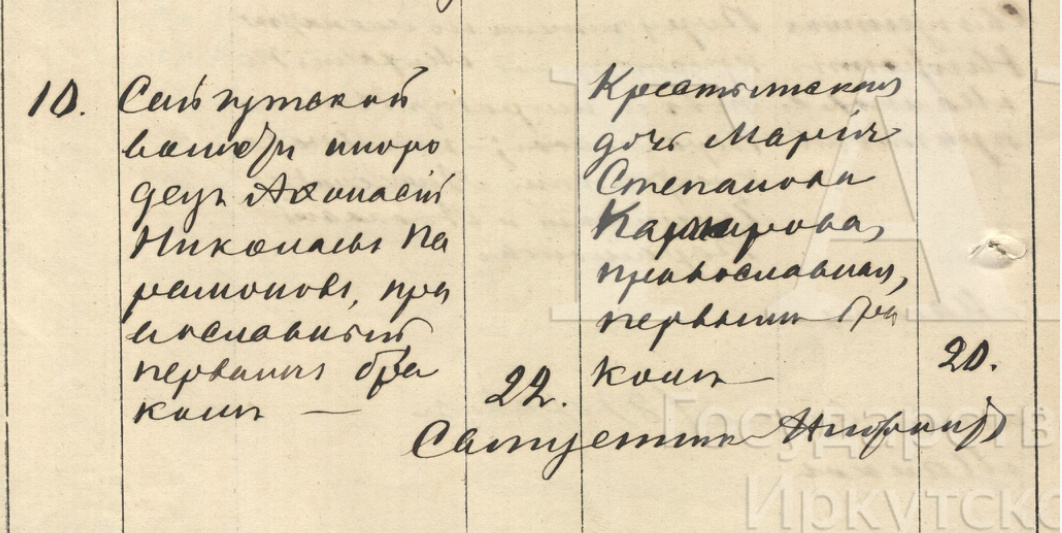 10.
Сайгутской
волости иноро
децъ Афонасій
Николаевъ Па
рамоновъ, пра
вославный
первымъ бра
комъ
22.
Крестьянская
дочь Марія
Степанова
православная,
первымъ бра
комъ
20.
Государств
Иркутско